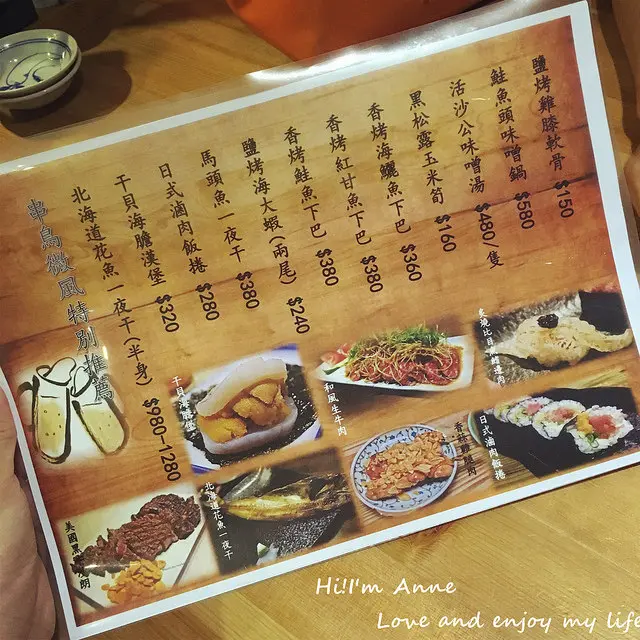 鹽烤雞膝軟骨 $150
鮭魚頭味噌鍋 $580
活沙公味噌湯 $480/隻
黑松露玉米筍 $160
香烤海鱺魚下巴 $360
香烤紅甘魚下巴 $380
香烤鮭魚下巴 $380
鹽烤海大蝦(兩尾) $240
馬頭魚一夜干 $380
日式滷肉飯捲 $280
干貝海膽漢堡 $320
北海道花魚一夜干(半身) $980-1280
串鳥微風特別推薦
炙燒比目魚鰭邊肉
和風生牛肉
干貝海膽堡
日式滷肉飯捲
北海道花魚一夜干
美國黑
朗
Hi!I'm Anne
Love and enjoy my life